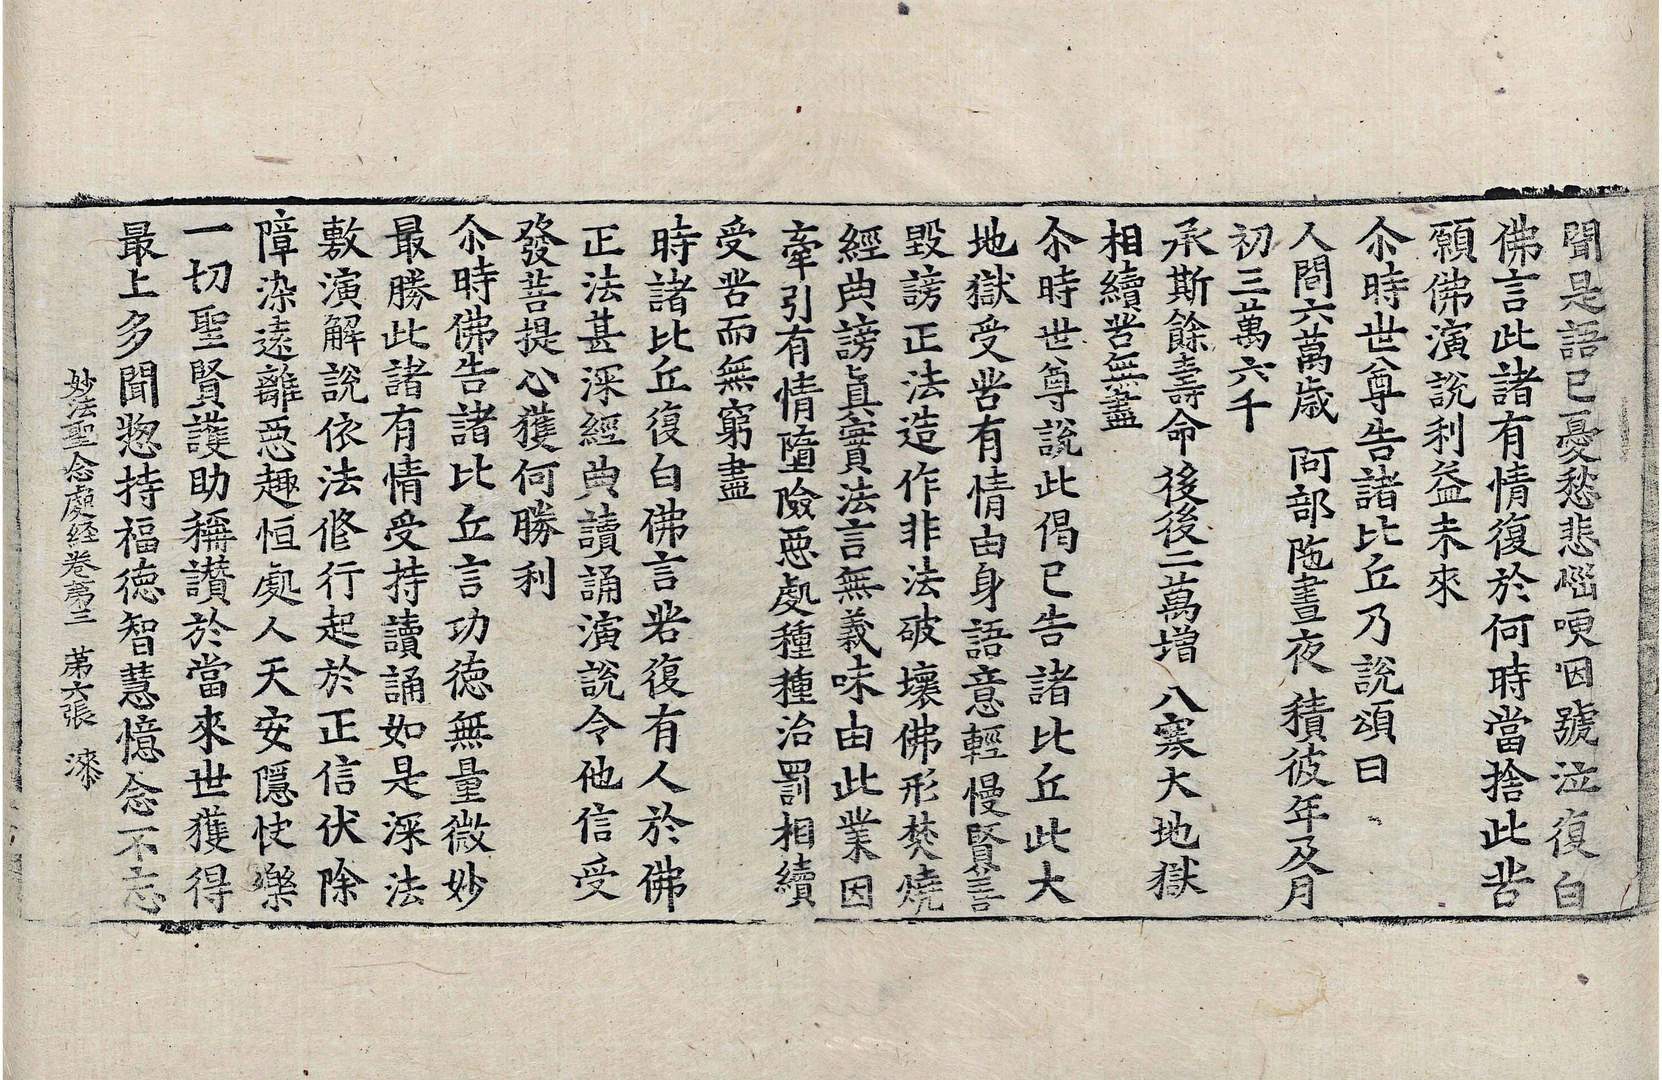 聞是語已憂愁悲惱哽咽號泣復白
佛言此諸有情復於何時當捨此苦
願佛演說利益未來
尒時世尊告諸比丘乃說頌曰
人間六萬歲　阿部陁晝夜　積彼年及月
初三萬六千
承斯餘壽命　後後二萬增　八寒大地獄
相續苦無盡
尒時世尊說此偈已告諸比丘此大
地獄受苦有情由身語意輕慢賢善
毀謗正法造作非法破壞佛形焚燒
經典謗眞實法言無義味由此業因
牽引有情墮險惡處種種治罰相續
受苦而無窮盡
時諸比丘復白佛言若復有人於佛
正法甚深經典讀誦演說令他信受
發菩提心獲何勝利
尒時佛告諸比丘言功德無量微妙
最勝此諸有情受持讀誦如是深法
敷演解說依法修行起於正信伏除
障染遠離惡趣恒處人天安隱快樂
一切聖賢護助稱讚於當來世獲得
最上多聞惣持福德智慧憶念不忘
妙法聖念處経卷苐三　苐六張　漆